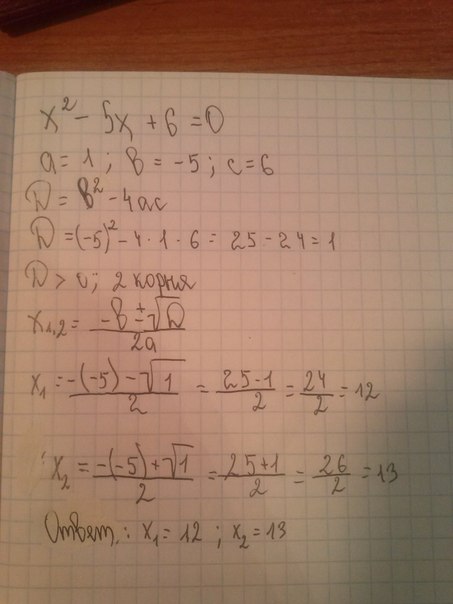 x² - 5x + 6 = 0
a = 1 ; в = -5 ; c = 6
D = в² - 4ac
D = (-5)² - 4 · 1 · 6 = 25 - 24 = 1
D > 0; 2 корня
x₁,₂ = (-в ± √D) / 2a
x₁ = (-(-5) - √1) / 2 = (25 - 1) / 2 = 24 / 2 = 12
x₂ = (-(-5) + √1) / 2 = (25 + 1) / 2 = 26 / 2 = 13
Ответ.: x₁ = 12 ; x₂ = 13